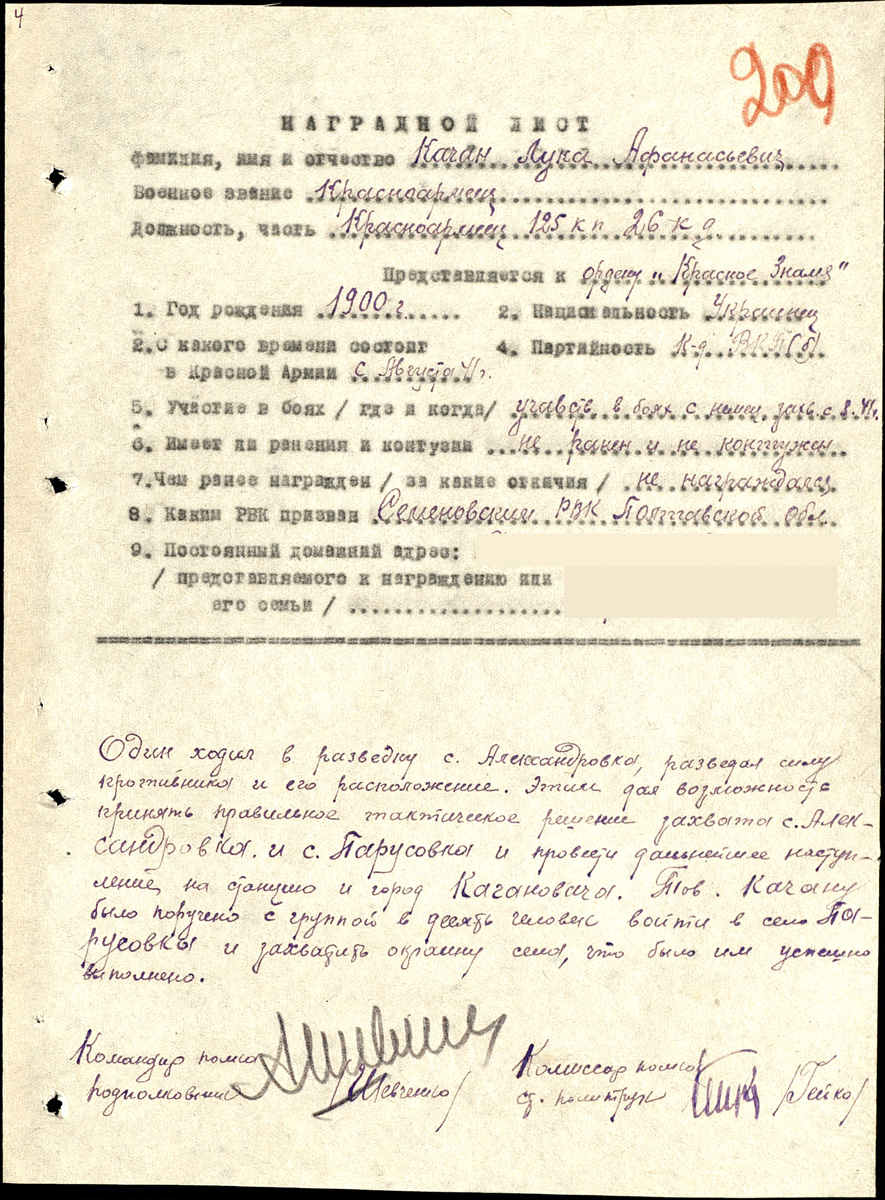 4
200
НАГРАДНОЙ ЛИСТ
Фамилия, имя и отчество Качан Лука Афанасьевич
Военное звание Красноармеец
Должность, часть Красноармеец 125 кп 26 кд.
Представляется к ордену „Красное Знамя"
1. Год рождения 1900 г. 2. Национальность Украинец
2. С какого времени состоит 4. Партийность К-д ВКП(б)
в Красной Армии с Августа 41 г.
5. Участие в боях / где и когда/ участв в боях с немец. захв. с 8.41 г.
6. Имеет ли ранения и контузии не ранен и не контужен
7. Чем ранее награжден / за какие отличия / не награждался
8. Каким РВК призван Семеновским РВК Полтавской обл.
9. Постоянный домашний адрес:
/ представляемого к награждению или
его семьи /
Один ходил в разведку с. Александровка, разведал силу
противника и его расположение. Этим дал возможность
принять правильное тактическое решение захвата с. Алек-
сандровка. и с. Парусовка и провести дальнейшее наступ-
ление на станцию и город Кагановича. Тов. Качану
было поручено с группой в десять человек войти в село Па-
русовка и захватить окраину села, что было им успешно
выполнено.
Командир полка Комиссар полка
подполковник /Шевченко/ ст. политрук /Гейко/